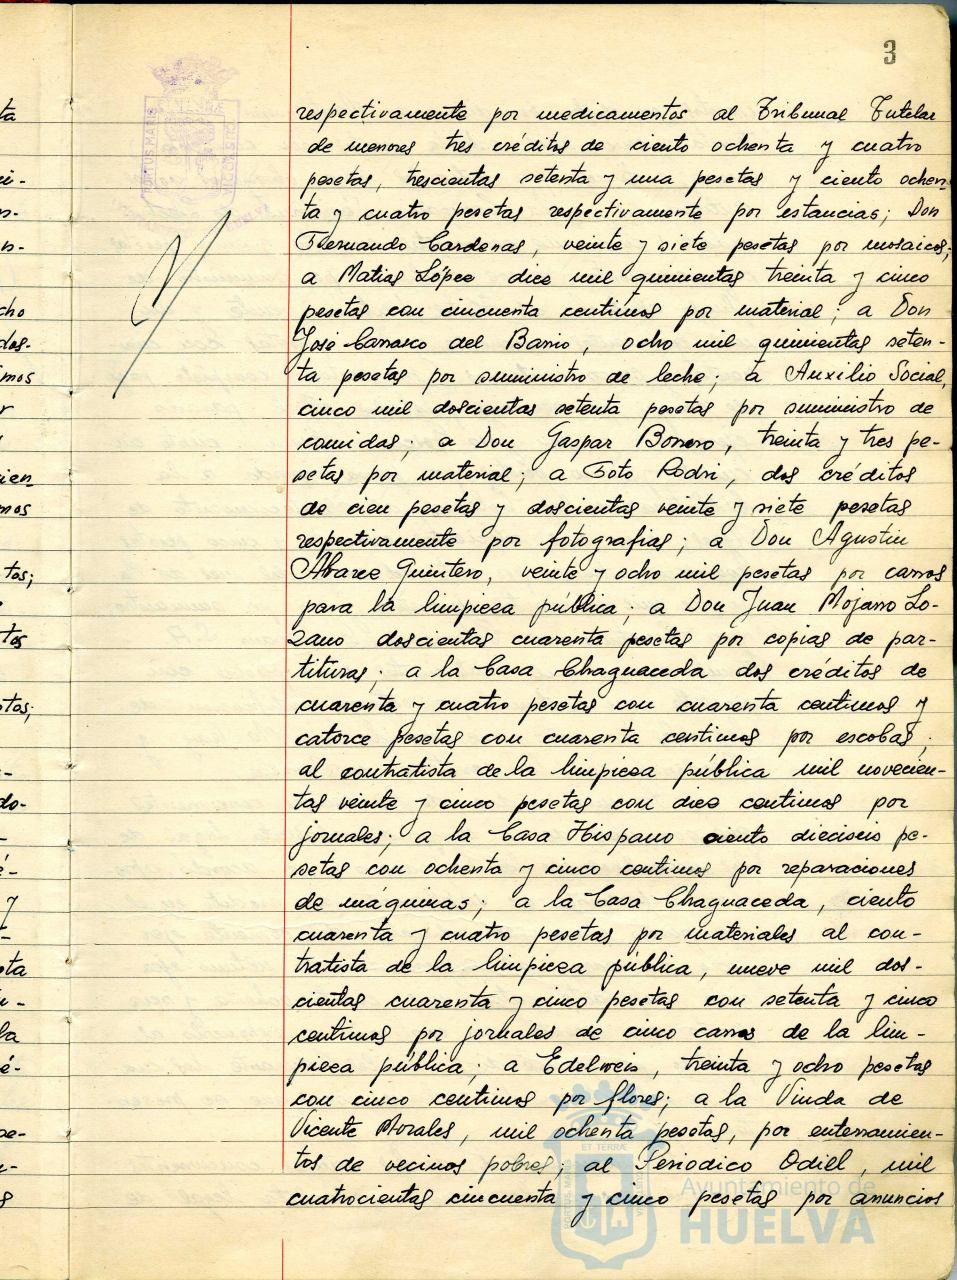 3
respectivamente por medicamentos al Tribunal Tutelar
de menores tres créditos de ciento ochenta y cuatro
pesetas, trescientas setenta y una pesetas y ciento ochen-
ta y cuatro pesetas respectivamente por estancias; Don
Fernando Cardenas, veinte y siete pesetas por mosaicos;
a Matias López diez mil quinientas treinta y cinco
pesetas con cincuenta centimos por material; a Don
José Carrasco del Barrio, ocho mil quinientas seten-
ta pesetas por suministro de leche; a Auxilio Social,
cinco mil doscientas setenta pesetas por suministro de
comidas; a Don Gaspar Borrero, treinta y tres pe-
setas por material; a Foto Rodri, dos créditos
de cien pesetas y doscientas veinte y siete pesetas
respectivamente por fotografias; a Don Agustin
Alvarez Quintero, veinte y ocho mil pesetas por carros
para la limpieza pública; a Don Juan Mojarro Lo-
zano doscientas cuarenta pesetas por copias de par-
tituras; a la Casa Chaguaceda dos créditos de
cuarenta y cuatro pesetas con cuarenta centimos y
catorce pesetas con cuarenta centimos por escobas;
al contratista de la limpieza pública mil novecien-
tas veinte y cinco pesetas con diez centimos por
jornales; a la Casa Hispano ciento dieciseis pe-
setas con ochenta y cinco centimos por reparaciones
de máquinas; a la Casa Chaguaceda, ciento
cuarenta y cuatro pesetas por materiales al con-
tratista de la limpieza pública, nueve mil dos-
cientas cuarenta y cinco pesetas con setenta y cinco
centimos por jornales de cinco carros de la lim-
pieza pública; a Edelweis, treinta y ocho pesetas
con cinco centimos por flores; a la Viuda de
Vicente Morales, mil ochenta pesetas, por enterramien-
tos de vecinos pobres; al Periodico Odiel, mil
cuatrocientas cincuenta y cinco pesetas por anuncios
Ayuntamiento de
HUELVA